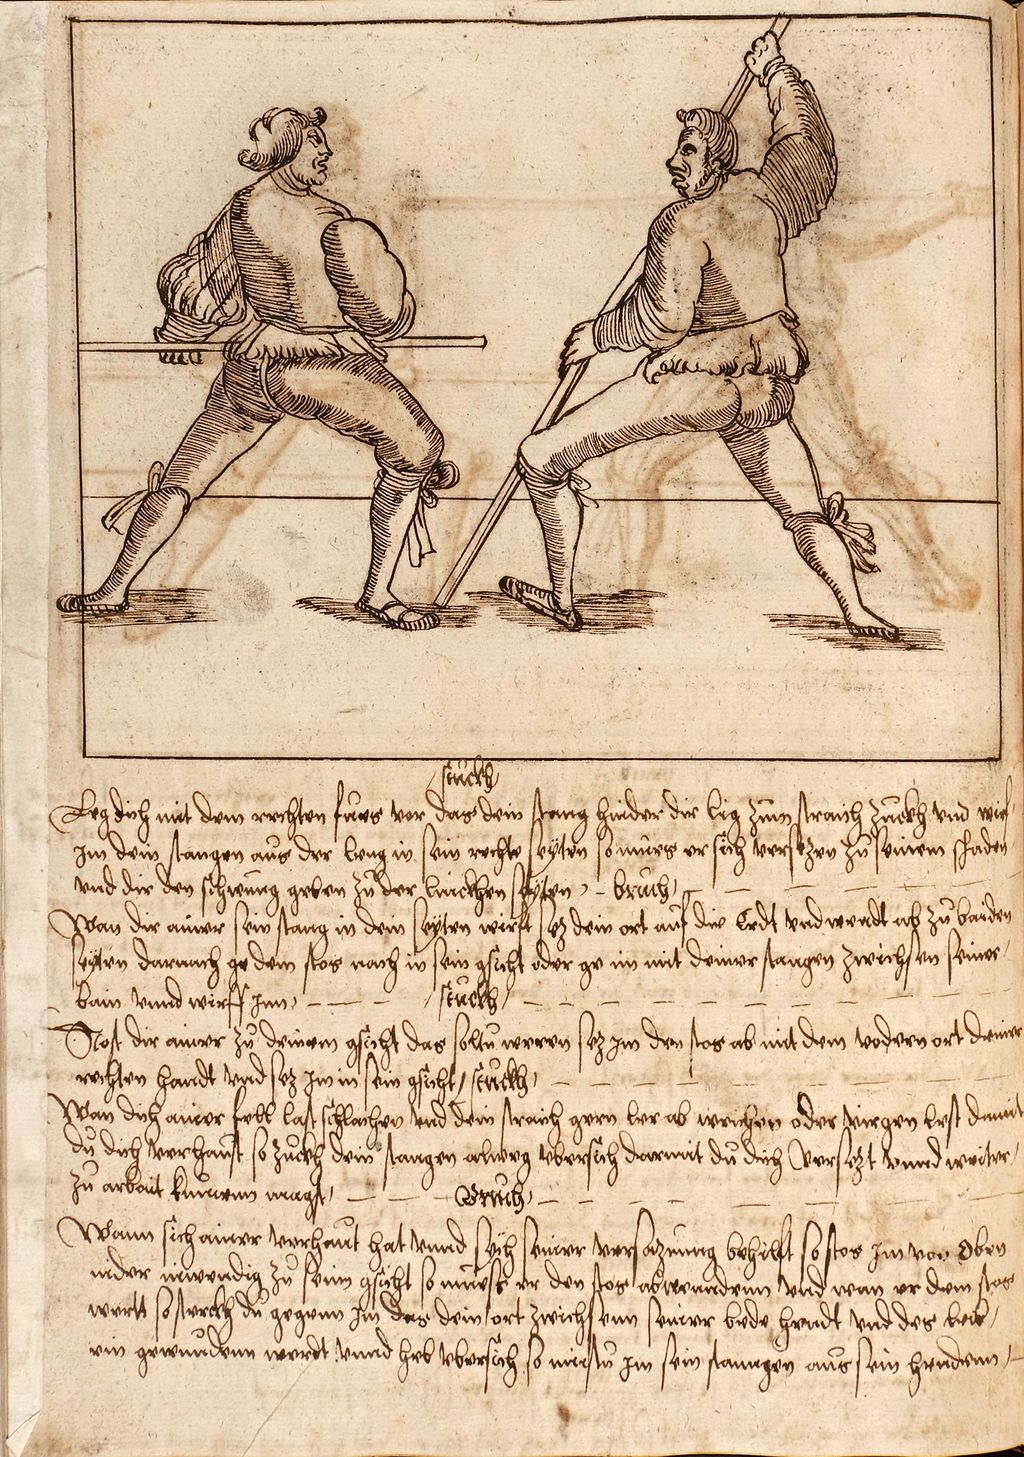 stuckh
Leg dich mit dem rechten fues vor das dein stang hinder dir lig zum straich Zuckh vnd wirf
Im dein stangen aus der leng in sein rechte seyten so mues er sich versetzen zu seinem schaden
vnd dir den schwung geben zu der linckhen seyten bruch
Wan dir ainer sein stang in dein seyten wirft setz dein ort auf die Erdt vnd wendt ab zu baiden
seyten darnach ge dem stos nach in sein gsicht oder ge im mit deiner stangen zwichsen seiner
bain vnnd wirff Inn stuckh
Stost dir ainer zu deinem gsicht das soltu weren setz im den stos ab mit dem vodern ort deiner
rechten handt vnd setz im in sein gsicht stuckh
Wan dich ainer fell last schlachen vnd dein straich gern ler ab weichen oder lest damit
du dich verhaust so zuckh dein stangen alweg vbersich darmit du dich versetzt vnnd weiter
zu arbait kumenn magst Bruch
Wann sich ainer verhaut hat vnnd sich seiner versatzung behilfft so stos Im von Oben
nider inwendig zu seim gsicht so muess er den stos abwendenn vnd wan er dem stos
wert so sterckh du gegenn Im das dein ort zwichsenn seiner bede hendt vnd des leib
ein gewundenn werdt vnnd heb vbersich so nimstu Im sein stanngen aus sein hendenn